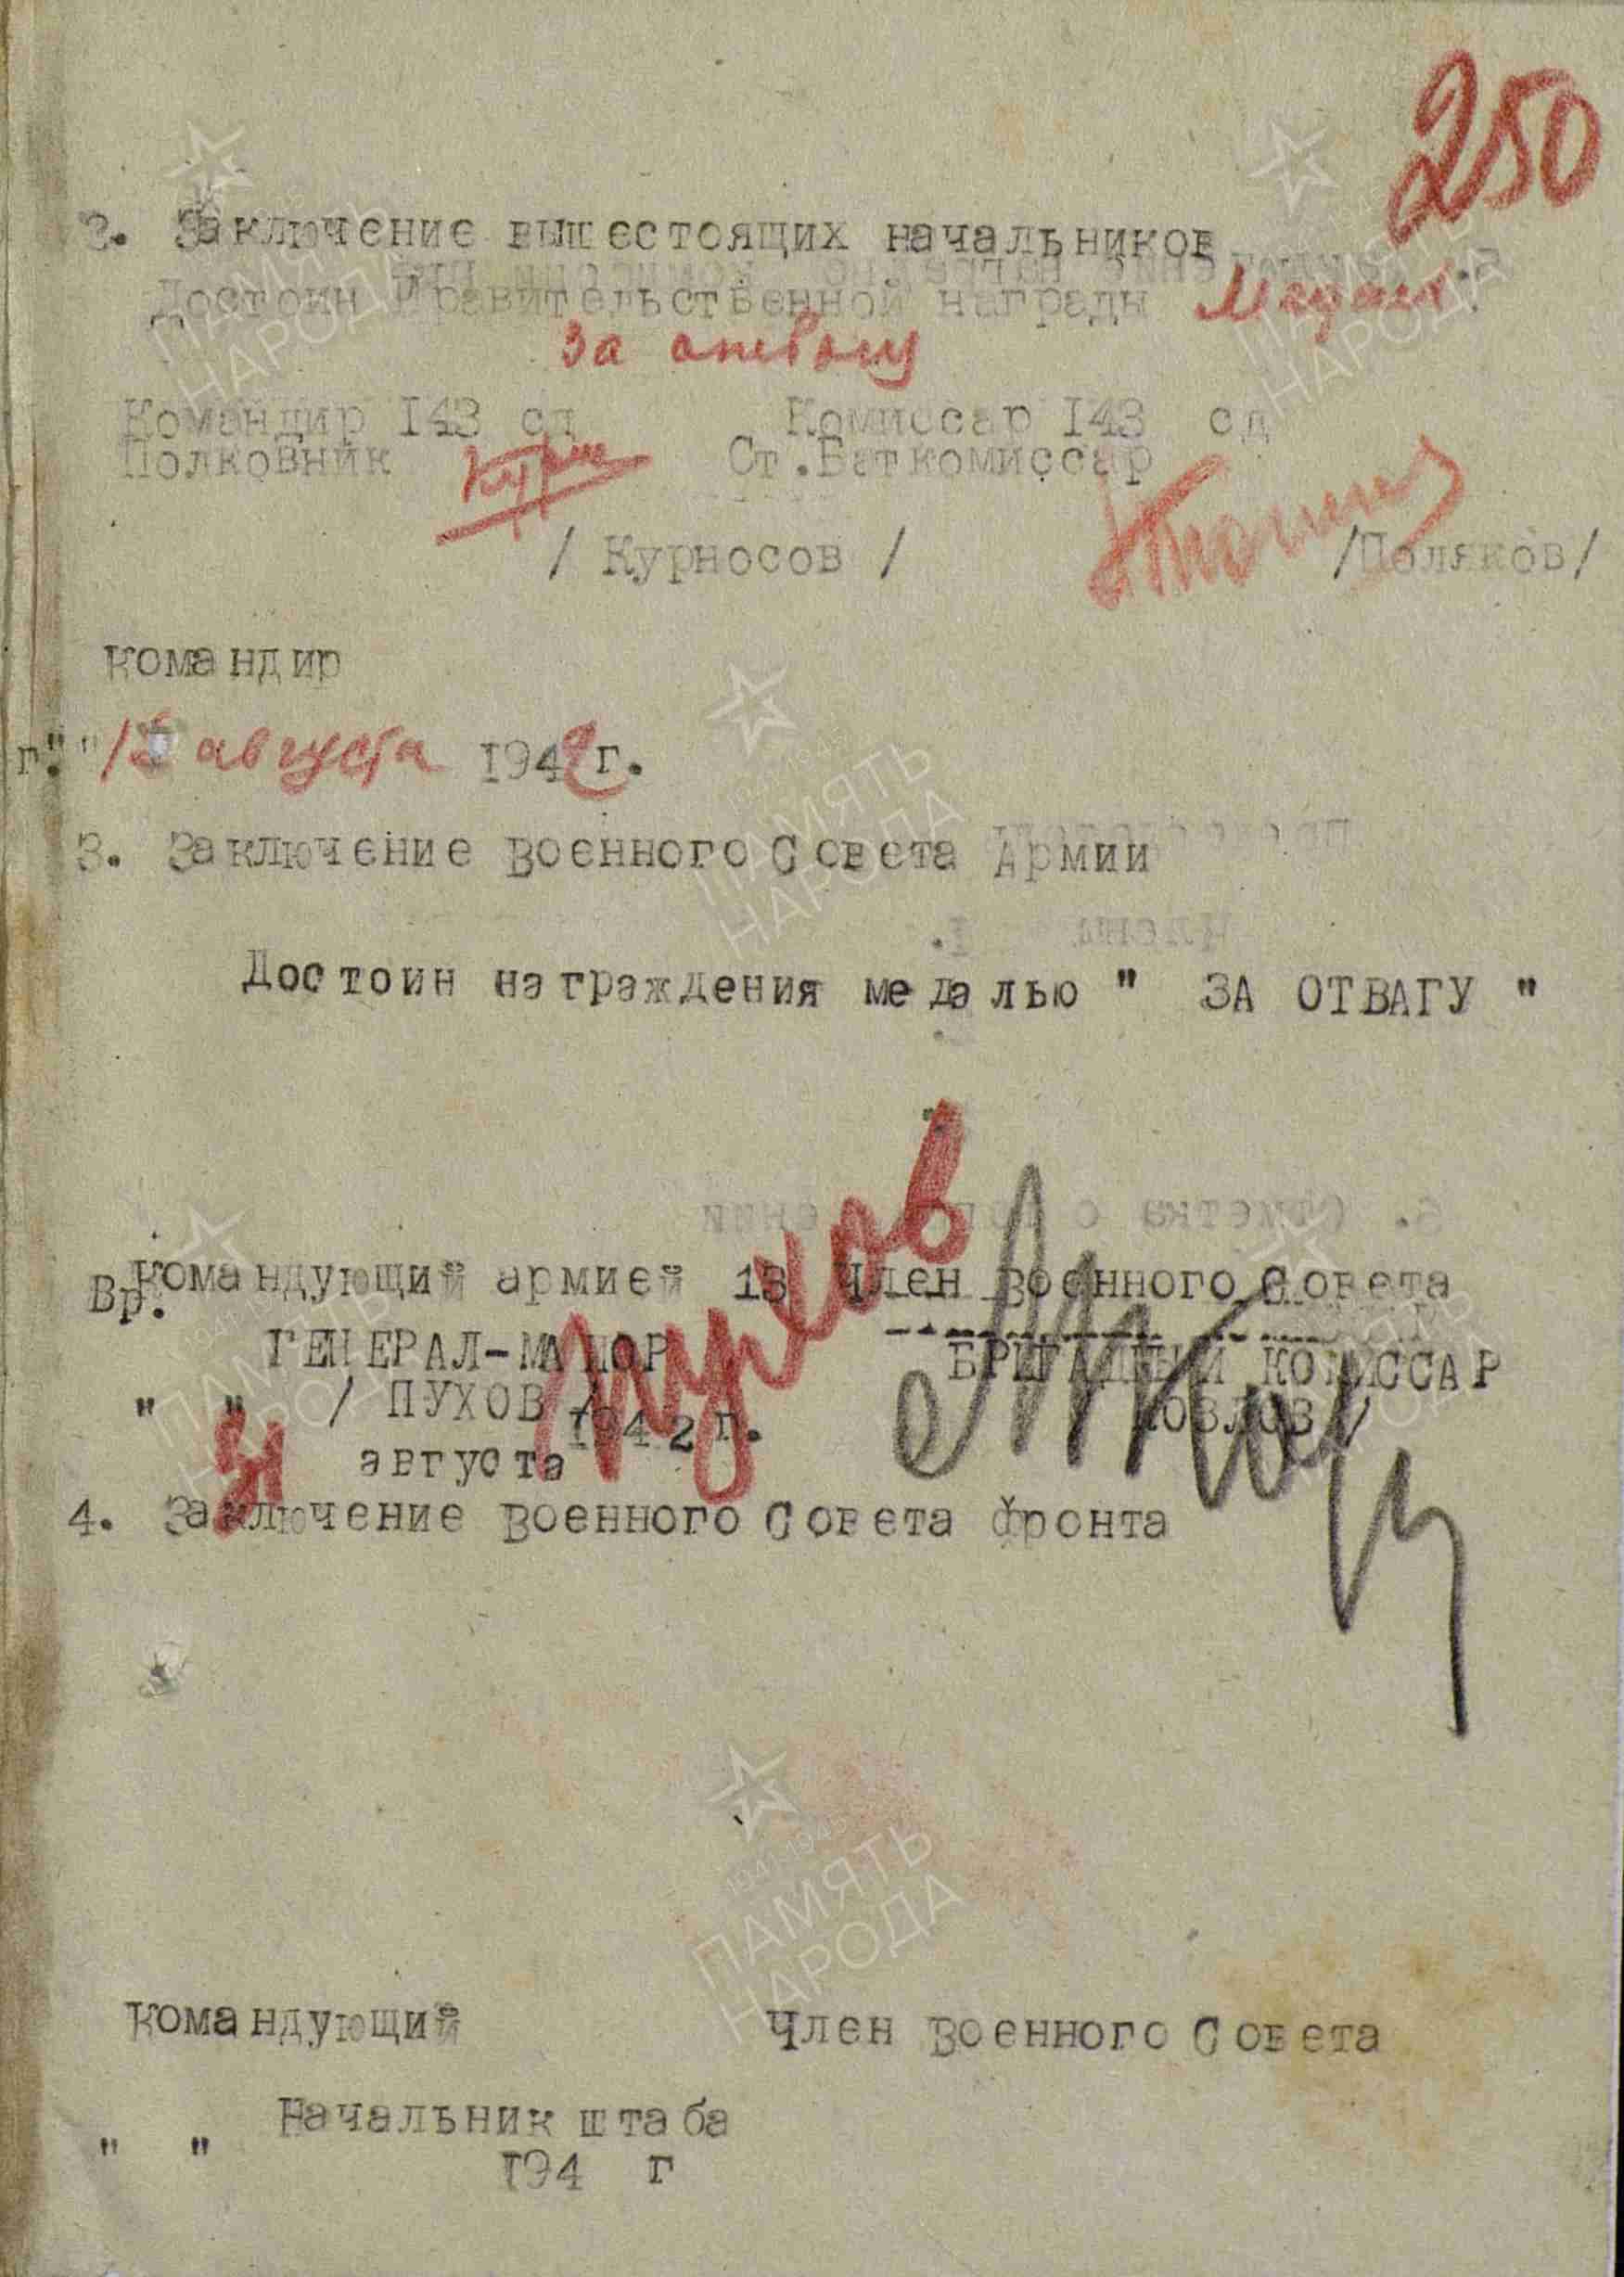 250
2. Заключение вышестоящих начальников
Достоин Правительственной награды Медаль
за отвагу
Командир 143 сд Комиссар 143 сд
Полковник Ст.Баткомиссар
/ Курносов / /Поляков/
Командир
г." " августа 1942г.
3. Заключение Военного Совета Армии
Достоин награждения медалью " ЗА ОТВАГУ "
Вр. Командующий армией 13 Член Военного Совета
ГЕНЕРАЛ-МАЙОР БРИГАДНЫЙ КОМИССАР
Пухов
/ ПУХОВ / КОЗЛОВ /
" " 1942 г.
31 августа
4. Заключение Военного Совета фронта
Командующий Член Военного Совета
Начальник штаба
" " 194 г
1941-1945
ПАМЯТЬ
НАРОДА